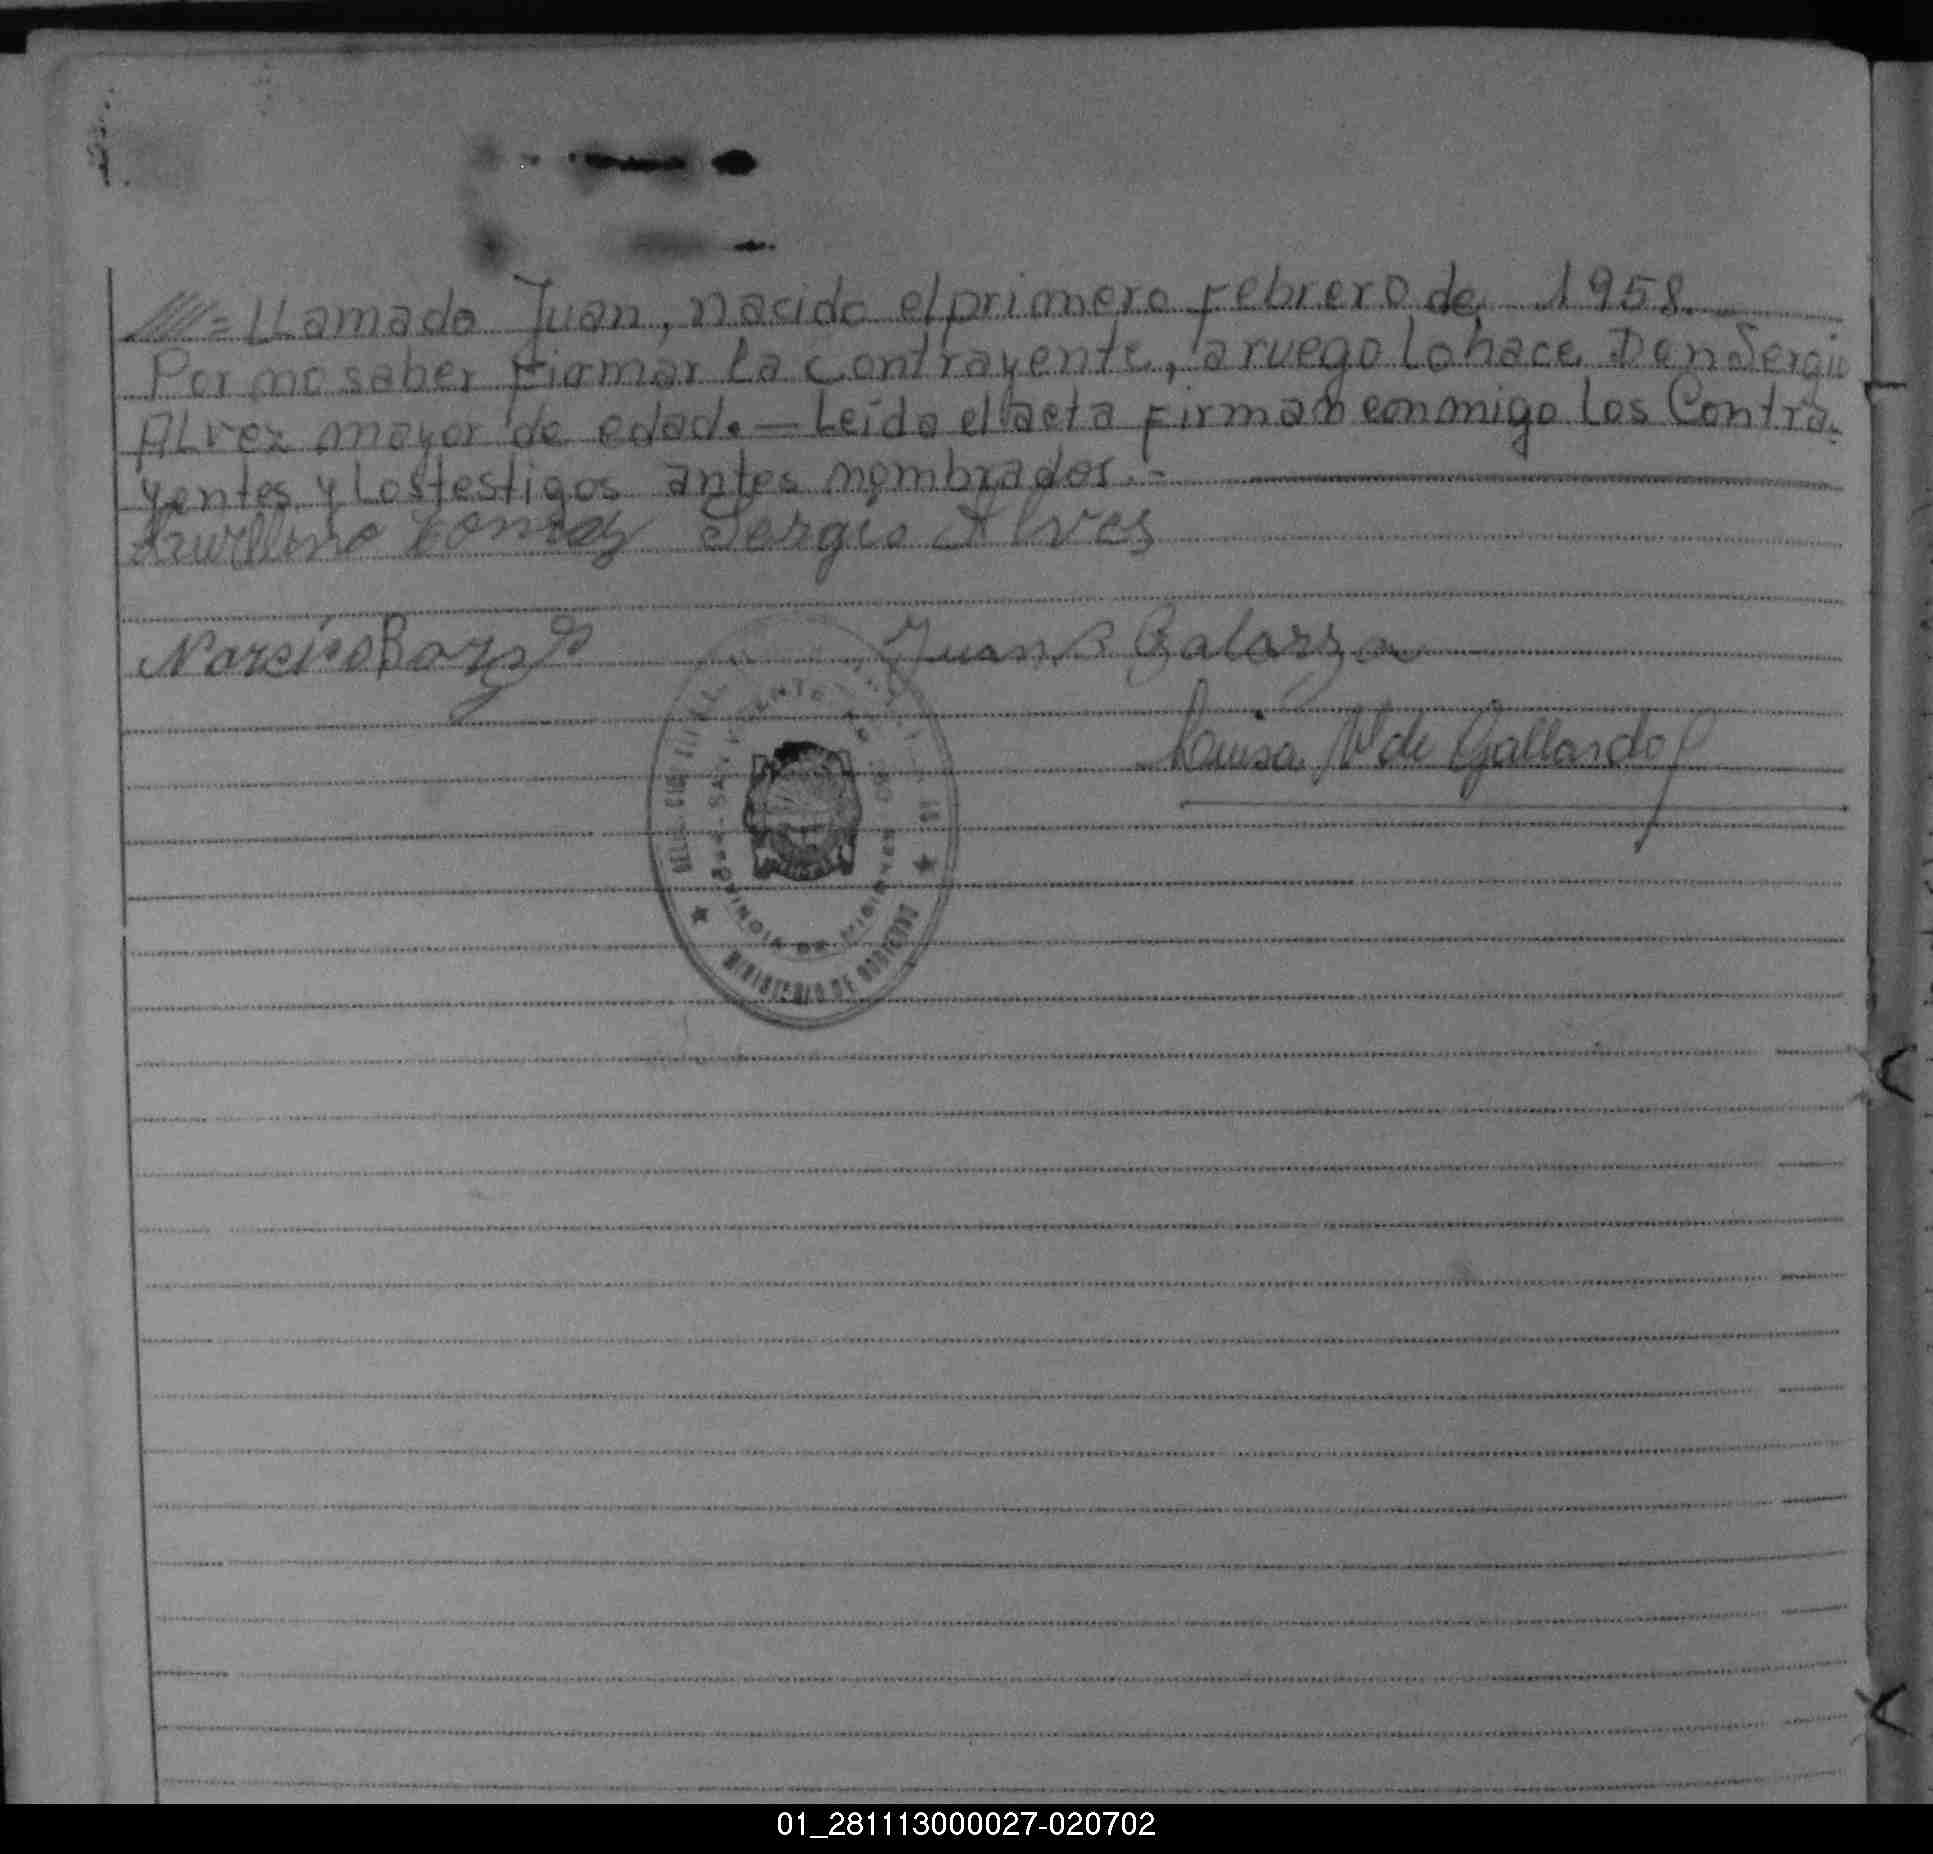 = LLamado Juan, nacido el primero Febrero de 1958.
Por no saber Firmar la contrayente, a ruego Lo hace Don Sergio
ALvez mayor de edad. = Leída el acta Firman conmigo Los Contra-
yentes y Los testigos antes nombrados. =
Sergio Alves
Narciso Borges Juan Galarza
Luisa de Gallardo
PROVINCIA DE MISIONES
MINISTERIO DE GOBIERNO
01_281113000027-020702